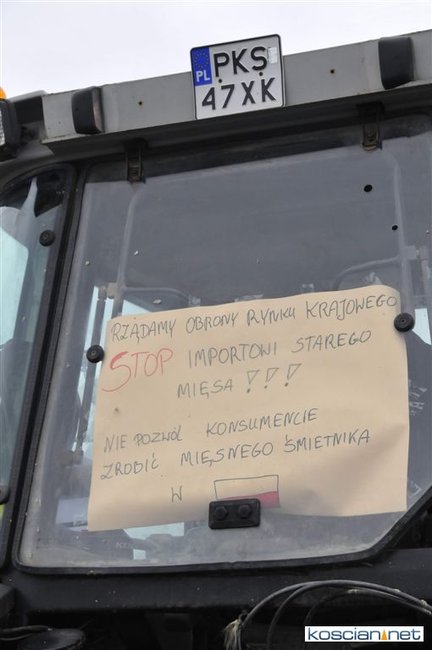 PKS
PL
47XK
RZĄDAMY OBRONY RYNKU KRAJOWEGO
STOP IMPORTOWI STAREGO
MIĘSA !!!
NIE POZWÓL KONSUMENCIE
ZROBIĆ MIĘSNEGO ŚMIETNIKA
W
koscian.net